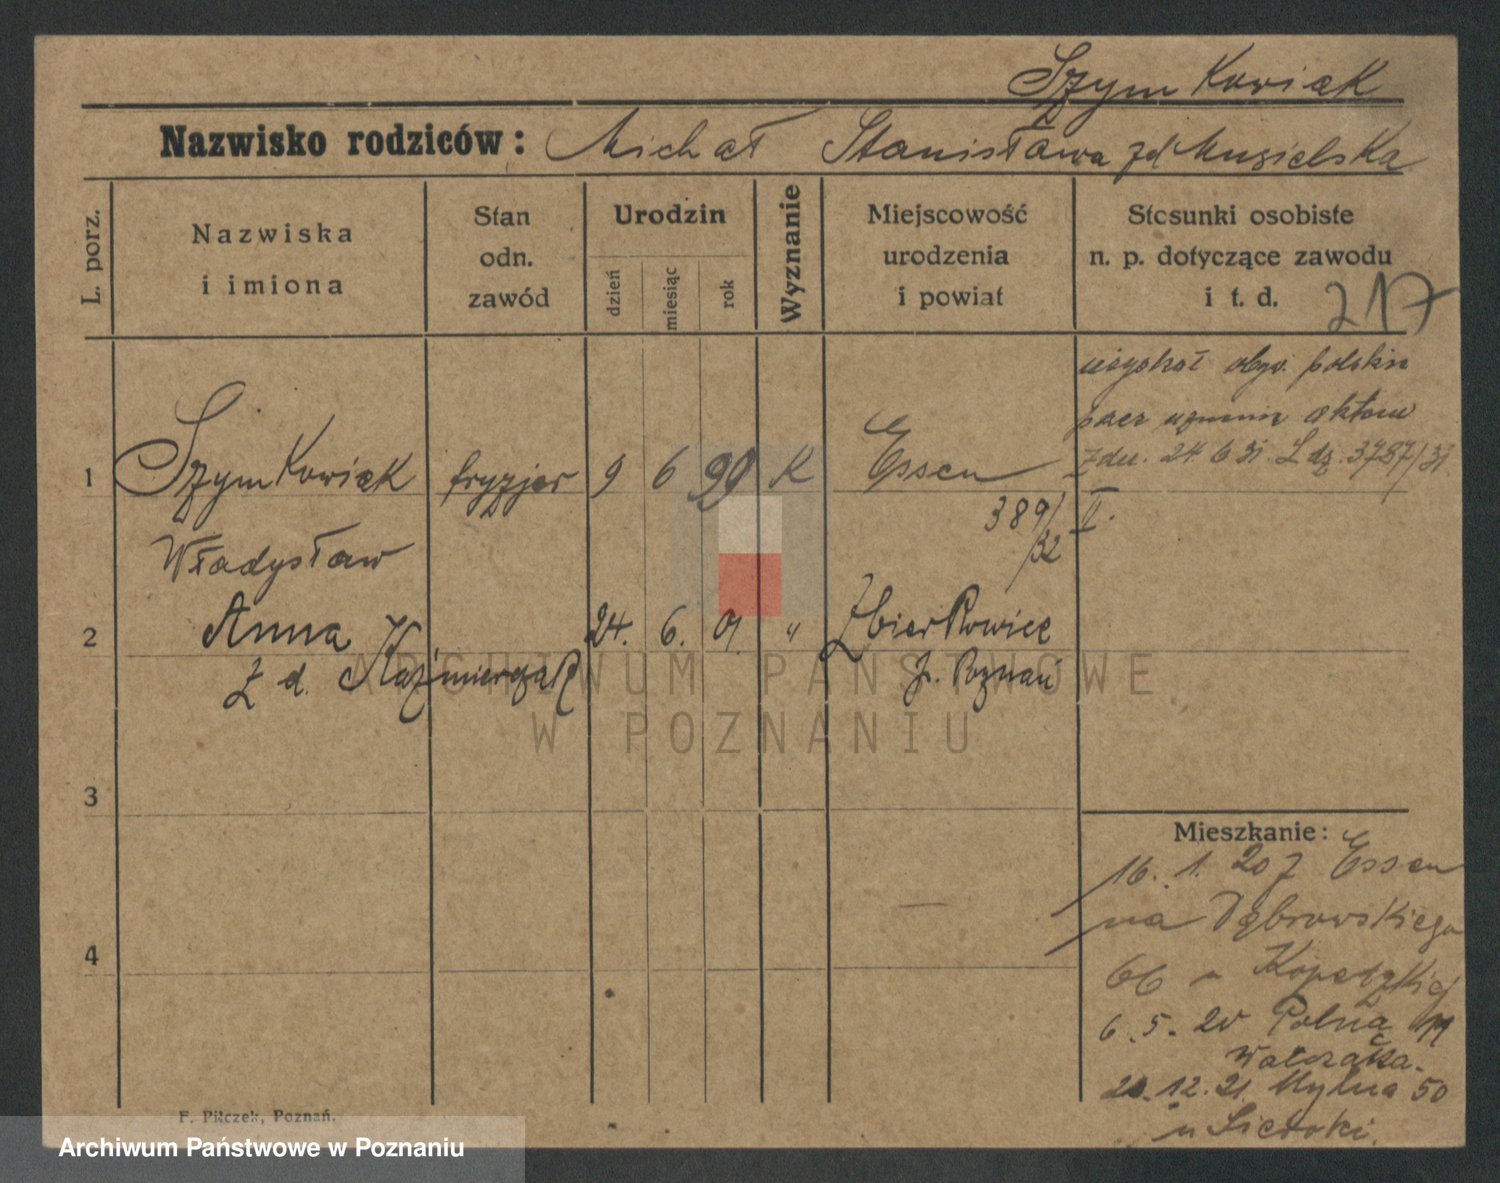 Szymkowiak
Nazwisko rodziców: Michał Stanisława zd Musielska
L. porz.
Nazwiska
i imiona
Stan
odn.
zawód
Urodzin
dzień
miesiąc
rok
Wyznanie
Miejscowość
urodzenia
i powiat
Stosunki osobiste
n. p. dotyczące zawodu
i t. d.
217
uzyskał obyw. polskie
24. 6 31. L dz. 3787/31.
1 Szymkowiak fryzjer 9 6 99 K Essen
389/32 II.
Władysław
2 Anna 24. 6. 01. " Zbierkowice
z d. Kaźmierczak p. Poznań
3
4
Mieszkanie:
16. 1. 20 z Essen
na Dąbrowskiego
66 u
6. 5. 20 Polna 11
Walczaka.
12. 21. Mylna 50
u
F. Pilczek, Poznań.
ARCHIWUM PAŃSTWOWE
W POZNANIU
Archiwum Państwowe w Poznaniu